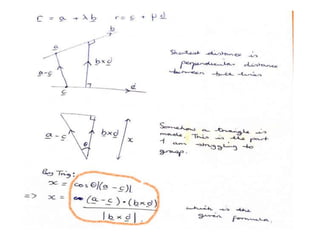 r = a + λb    r = c + μd
b
a
a-c
b×d
c
d
Shortest distance is
perpendicular distance
between both lines
a-c
b×d
x
θ
Somehow a triangle is
made. This is the part
I am struggling to
grasp.
By Trig:
x = cosθ|(a-c)|
=> x = (a-c)•(b×d)
|b×d|
which is the
given formula.